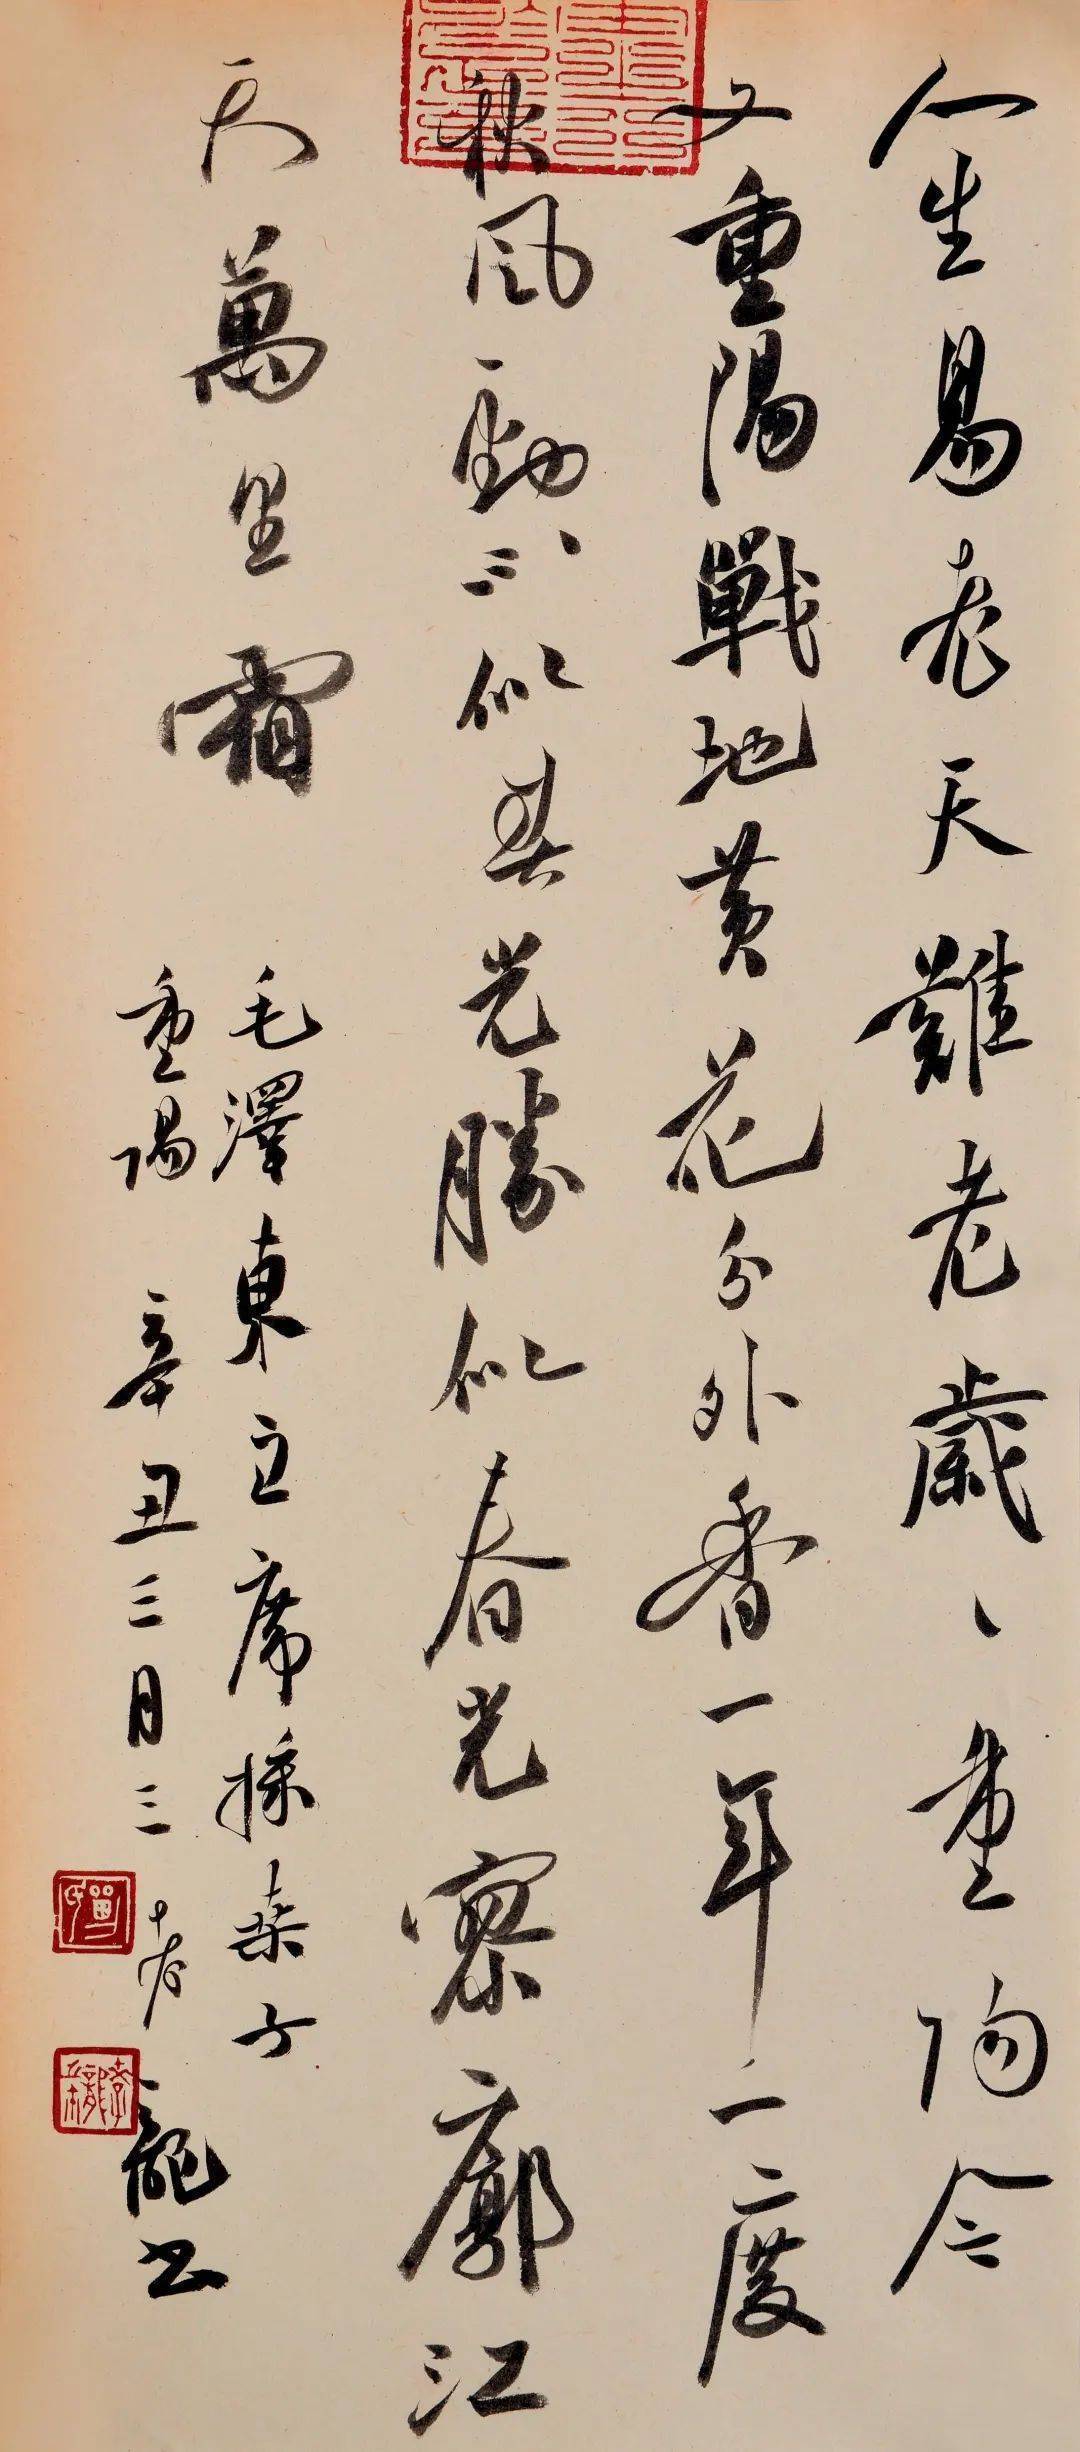 人生易老天難老歲、重陽今
又重陽戰地黃花分外香一年一度
秋風勁不似春光勝似春光寥廓江
天萬里霜
毛澤東主席採桑子
重陽 辛丑三月三 龍書